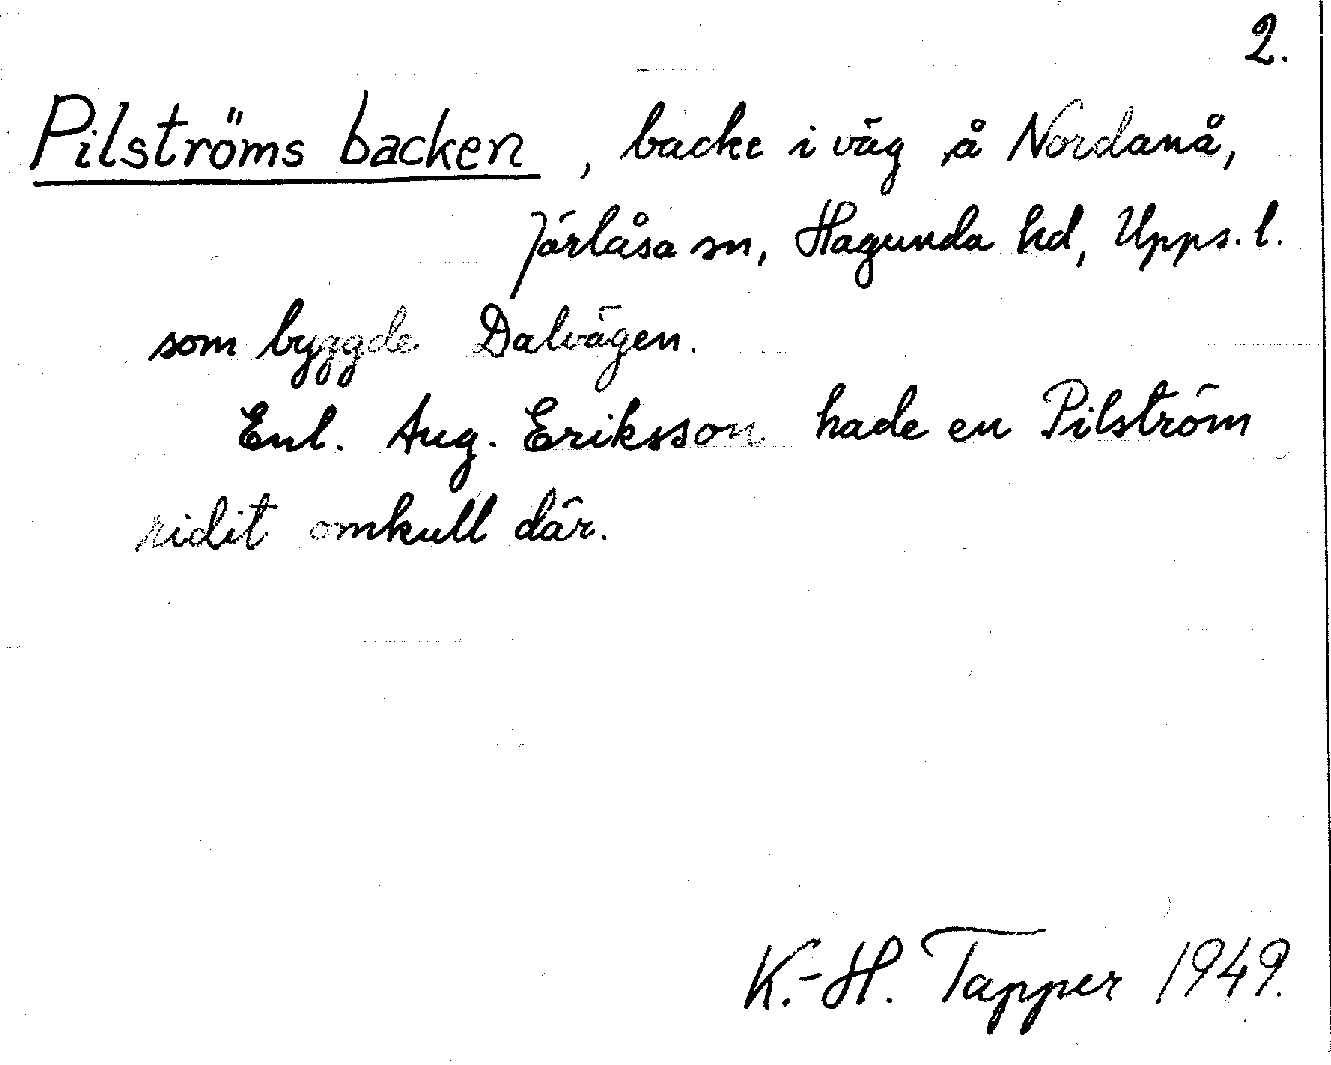 2.
Pilströms backen, backe i väg å Nordanå,
Järlåsa sn, Hagunda hd, Upps. l.
som byggde Dalvägen.
Enl. Aug. Eriksson hade en Pilström
ridit omkull där.
K.-H. Tapper 1949.